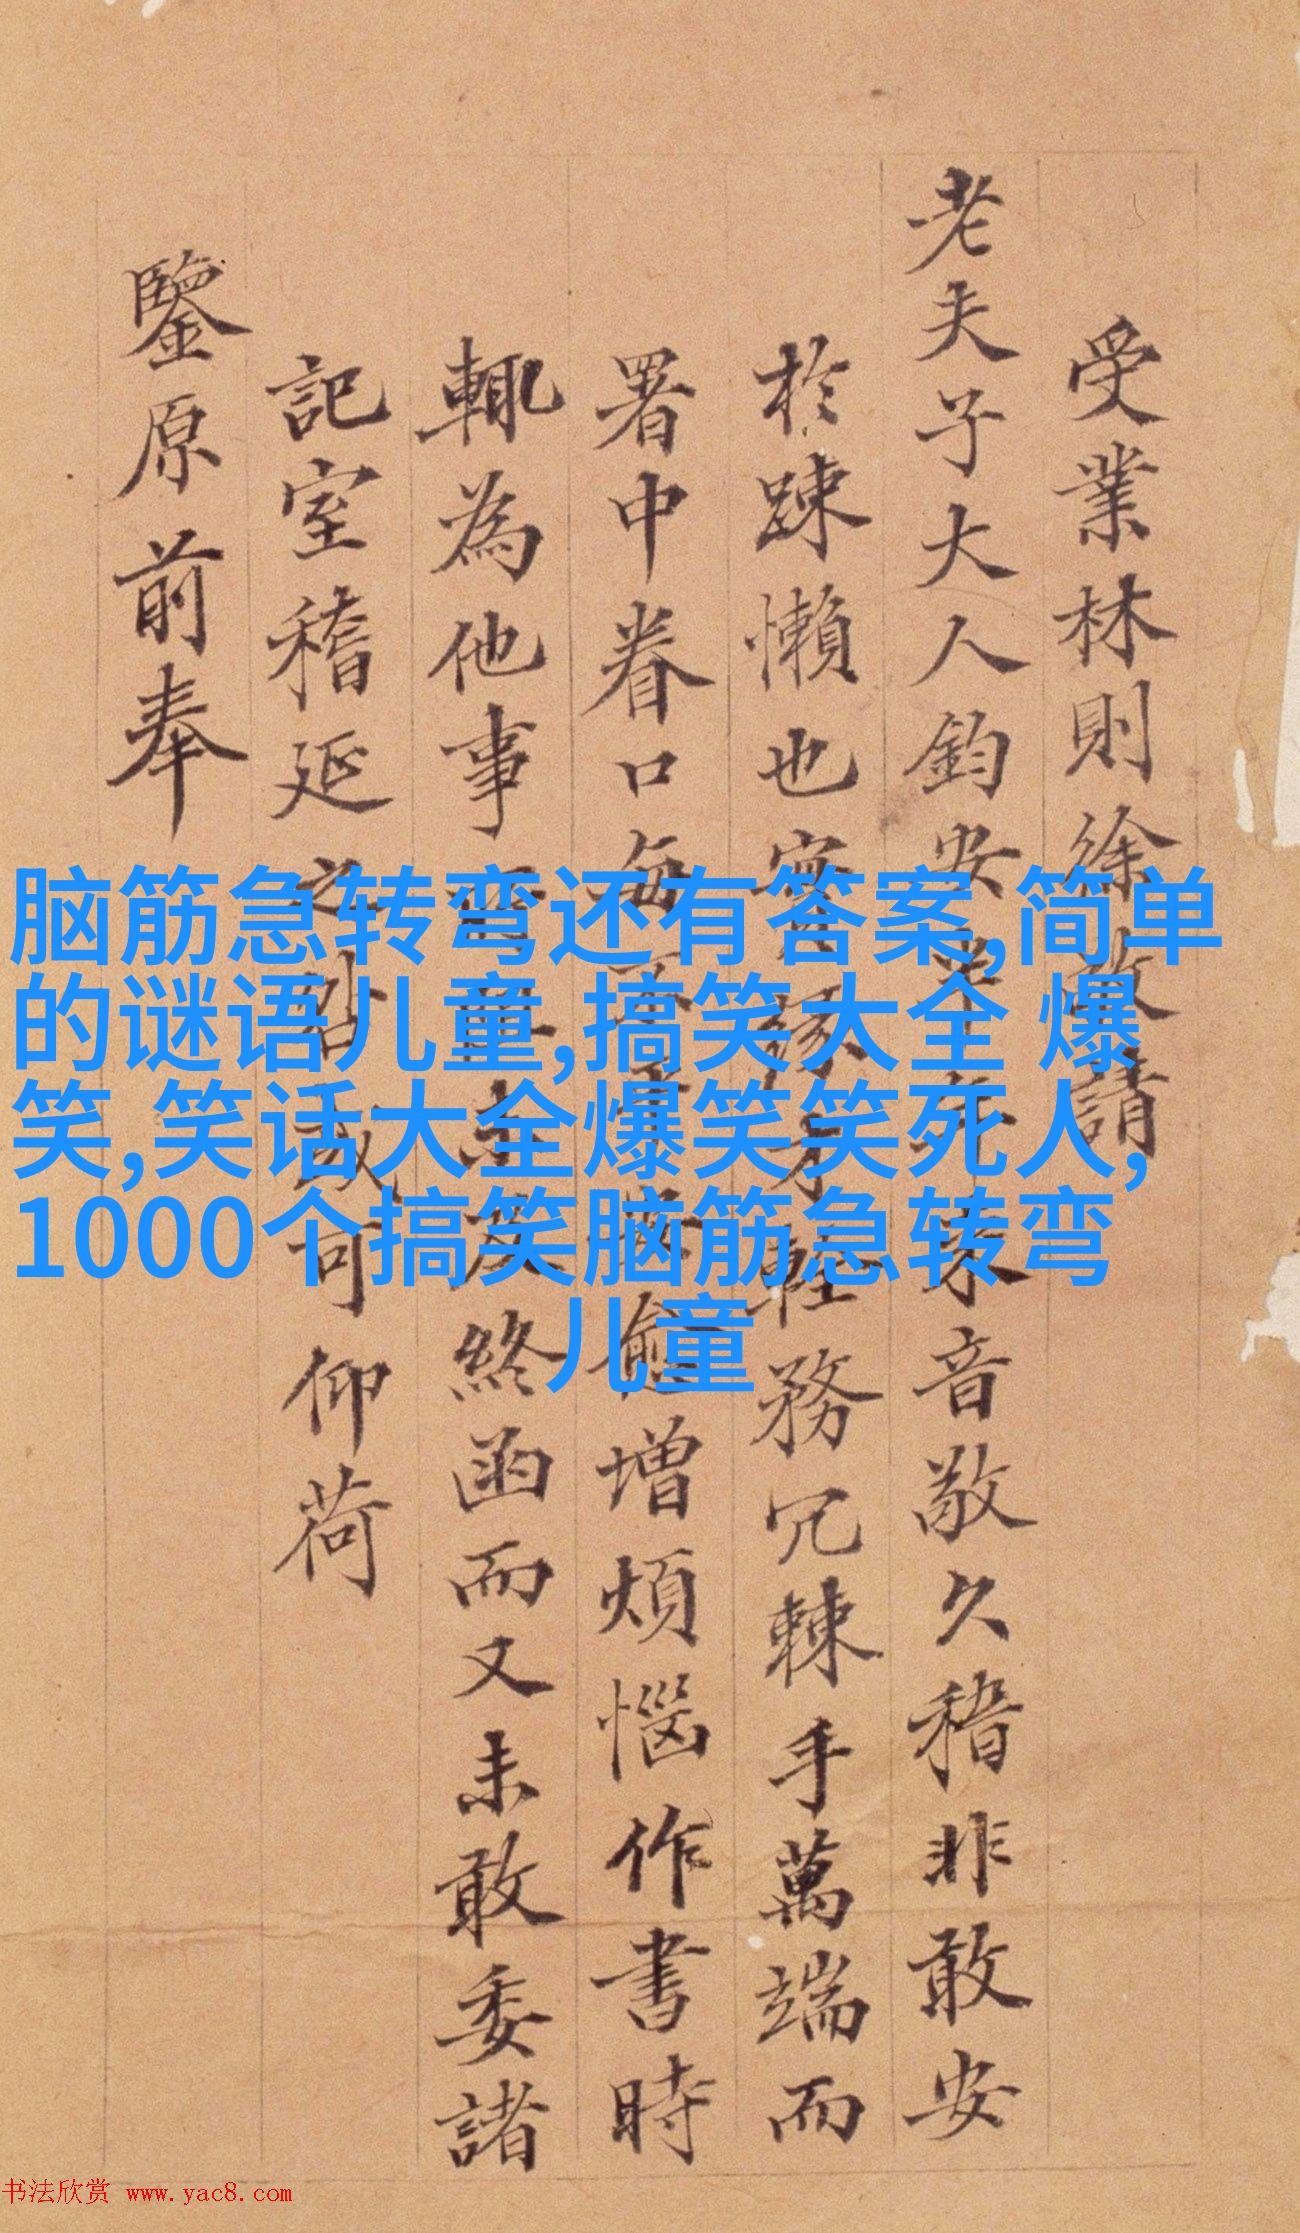 受業林則徐敬請
老夫子大人鈞安半年来音敬久稽非敢安
於踈懶也實緣才輕務冗棘手萬端而
署中眷口每增煩惱作書時
輒為他事終函而又未敢委諸
記室稽延之咎或可仰荷
鑒原前奉
脑筋急转弯还有答案,简单
的谜语儿童,搞笑大全 爆
笑,笑话大全爆笑笑死人,
1000个搞笑脑筋急转弯
儿童
书法欣赏 www.yac8.com